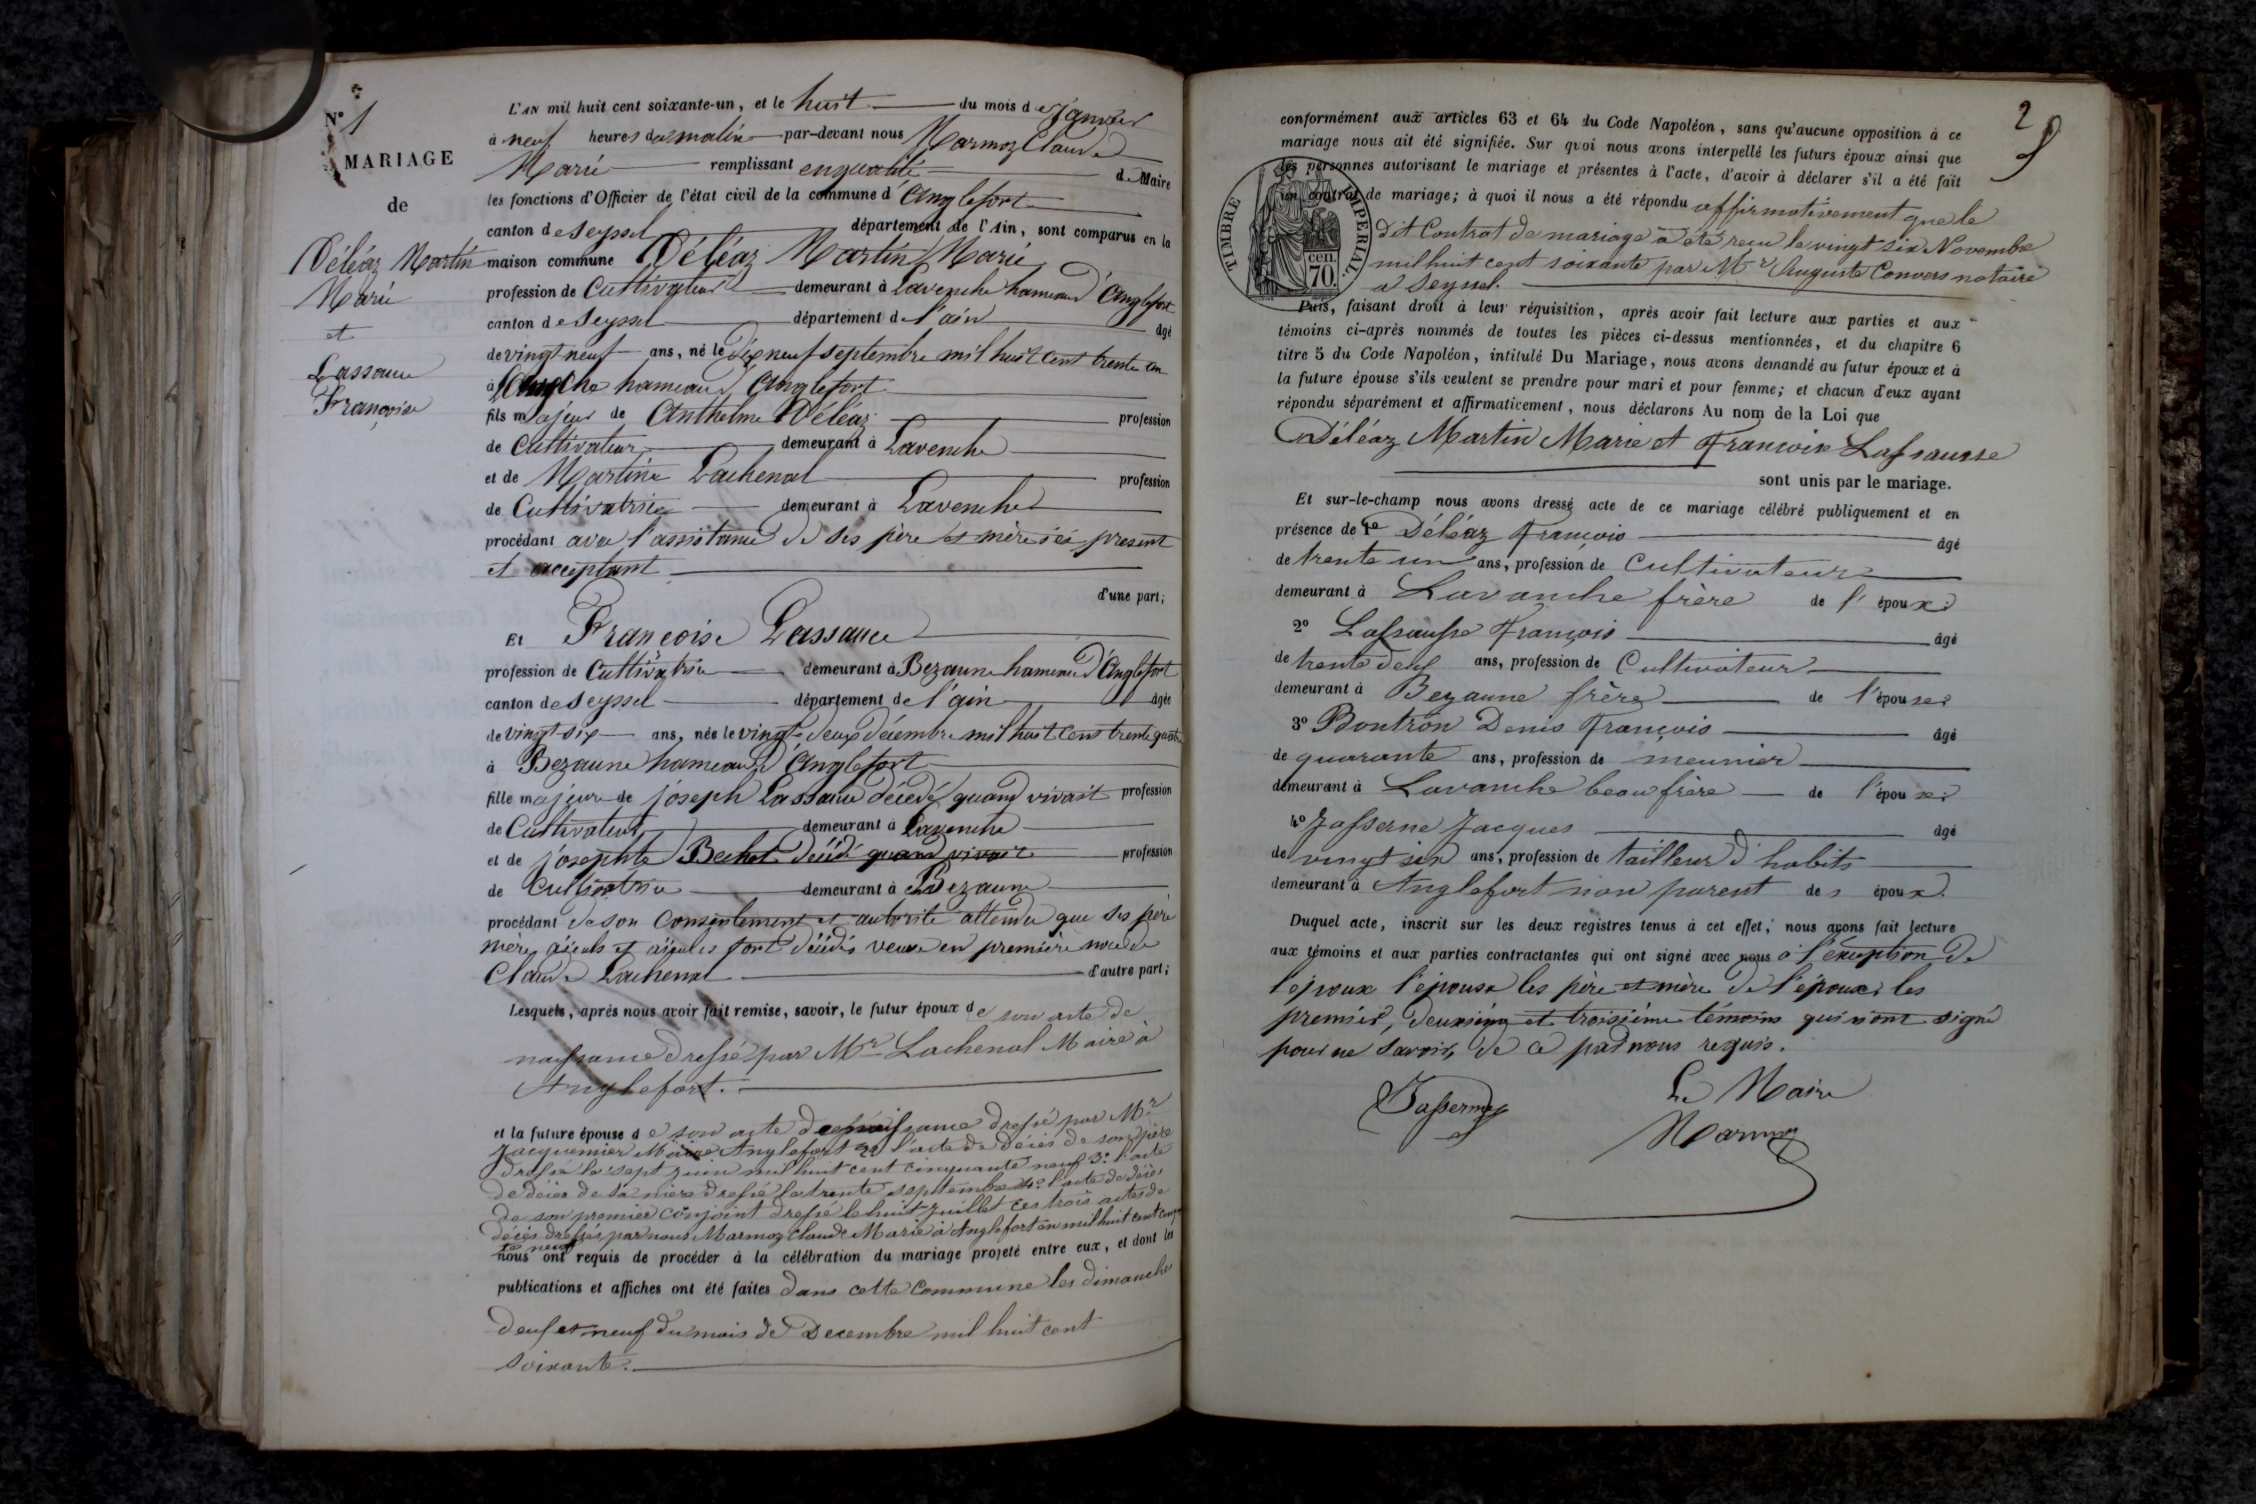 N° 1
MARIAGE
de
Déléaz Martin
Marie
et
Lassauce
Françoise
L'AN mil huit cent soixante-un, et le huit du mois de janvier
à neuf heures du matin par-devant nous Marmoz Claude
Marie remplissant en qualité de Maire
les fonctions d'Officier de l'état civil de la commune d'Anglefort
canton de Seyssel département de l'Ain, sont comparus en la
maison commune Déléaz Martin Marie
profession de Cultivateur demeurant à Lavenche hameau d'Anglefort
canton de Seyssel département de l'ain âgé
de vingt neuf ans, né le dix neuf septembre mil huit cent trente un
à hameau d'Anglefort
fils majeur de Anthelme Déléaz profession
de Cultivateur demeurant à Lavenche
et de Martine Lachenal profession
de Cultivatrice demeurant à Lavenche
procédant avec l'assistance de ses père et mère ici present
et acceptant
d'une part;
Et Françoise Lassauce
profession de Cultivatrice demeurant à Bezaune hameau d'Anglefort
canton de Seyssel département de l'ain âgée
de vingt-six ans, née le vingt-deux décembre mil huit cent trente quatre
à Bezaune hameau d'Anglefort
fille majeure de joseph Lassauce décédé quand vivait profession
de Cultivateur demeurant à Lavenche
et de josephte Bechet décédé quand vivait profession
de Cultivatrice demeurant à Bezaune
procédant de son Consentement et autorité attendu que ses père
mère aïeuls et aïeules sont décédés veuve en première noce de
Claude Lachenal d'autre part;
Lesquels, après nous avoir fait remise, savoir, le futur époux de son acte de
naissance dressé par Mr Lachenal Maire à
Anglefort.
et la future épouse de son acte de naissance dressé par Mr
Jacquemier Maire Anglefort 2° l'acte de décès de son père
dressé le sept juin mil huit cent cinquante neuf 3° l'acte
de décès de sa mère dressé le trente septembre 4° l'acte de décès
de son premier conjoint dressé le huit juillet ces trois actes de
décès dressés par nous Marmoz Claude Marie à Anglefort en mil huit cent cinquan
te neuf
nous ont requis de procéder à la célébration du mariage projeté entre eux, et dont les
publications et affiches ont été faites dans cette commune les dimanches
deux et neuf du mois de Decembre mil huit cent
soixante.
2
conformément aux articles 63 et 64 du Code Napoléon, sans qu'aucune opposition à ce
mariage nous ait été signifiée. Sur quoi nous avons interpellé les futurs époux ainsi que
les personnes autorisant le mariage et présentes à l'acte, d'avoir à déclarer s'il a été fait
un contrat de mariage; à quoi il nous a été répondu affirmativement que le
dit Contrat de mariage a été reçu le vingt six Novembre
mil huit cent soixante par Mr Auguste Convers notaire
à Seyssel.
TIMBRE IMPERIAL.
cen.
70.
Puis, faisant droit à leur réquisition, après avoir fait lecture aux parties et aux
témoins ci-après nommés de toutes les pièces ci-dessus mentionnées, et du chapitre 6
titre 5 du Code Napoléon, intitulé Du Mariage, nous avons demandé au futur époux et à
la future épouse s'ils veulent se prendre pour mari et pour femme; et chacun d'eux ayant
répondu séparément et affirmativement, nous déclarons Au nom de la Loi que
Déléaz Martin Marie et Françoise Lassausse
sont unis par le mariage.
Et sur-le-champ nous avons dressé acte de ce mariage célébré publiquement et en
présence de 1° Déléaz François âgé
de trente un ans, profession de Cultivateur
demeurant à Lavanche frère de l'époux.
2° Lassausse François âgé
de trente deux ans, profession de Cultivateur
demeurant à Bezaune frère de l'épouse.
3° Boutron Denis François âgé
de quarante ans, profession de meunier
demeurant à Lavanche beau frère de l'époux.
4° Jasserme Jacques âgé
de vingt six ans, profession de tailleur d'habits
demeurant à Anglefort non parent des époux.
Duquel acte, inscrit sur les deux registres tenus à cet effet, nous avons fait lecture
aux témoins et aux parties contractantes qui ont signé avec nous à l'exception de
l'époux l'épouse les père et mère de l'époux les
premier, deuxième et troisième témoins qui n'ont signé
pour ne savoir, de ce par nous requis.
Jasserme
Le Maire
Marmoz